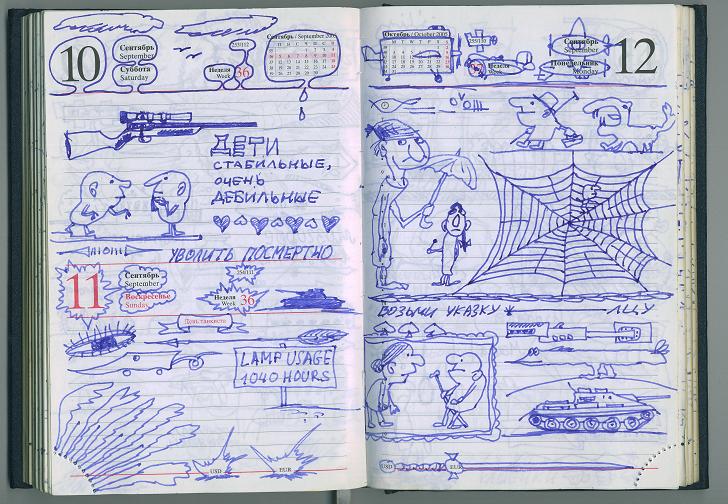 10
Сентябрь
September
Суббота
Saturday
253/112
Неделя
Week
36
Сентябрь / September 2005
ДЕТИ
СТАБИЛЬНЫЕ,
ОЧЕНЬ
ДЕБИЛЬНЫЕ
УВОЛИТЬ ПОСМЕРТНО
11
Сентябрь
September
Воскресенье
Sunday
254/111
Неделя
Week
36
День танкиста
LAMP USAGE
1040 HOURS
USD
EUR
Октябрь / October 2005
255/110
Неделя
Week
Сентябрь
September
Понедельник
Monday
12
ВОЗЬМИ УКАЗКУ
USD
EUR